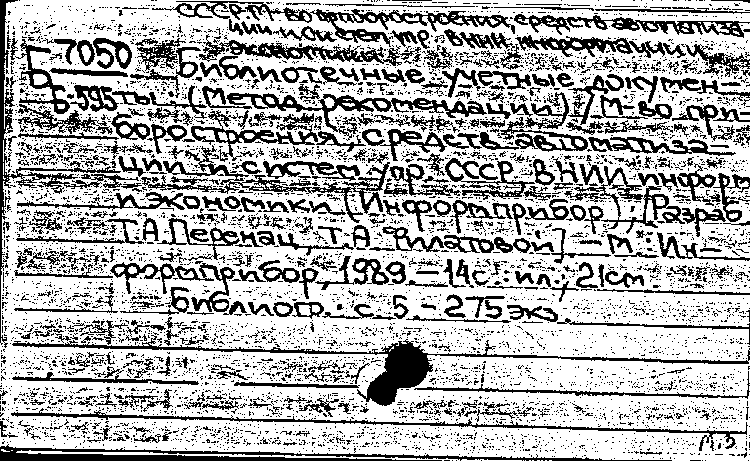 СССР. М-во приборостроения, средств автоматиза-
ции и систем упр. ВНИИ информации и
экономики
Б 7050
Б-595
Библиотечные учетные докумен-
ты. (Метод. рекомендации) / М-во при-
боростроения, средств автоматиза-
ции и систем упр. СССР, ВНИИ информ.
и экономики (Информприбор); [Разраб.
Т.А. Филатовой]. - М.: Ин-
формприбор, 1989. - 14с.: ил.; 21см.
Библиогр.: с. 5. - 275 экз.